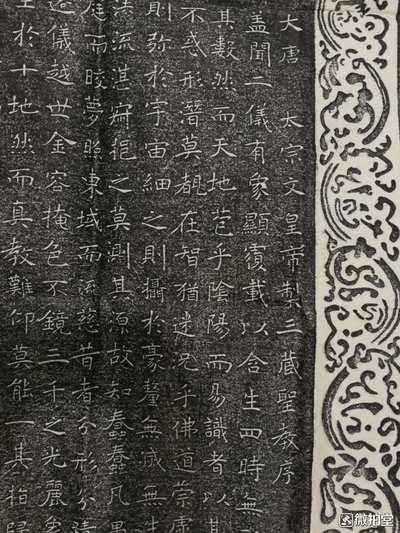 大唐 太宗文皇帝製三藏聖教序
蓋聞二儀有象顯覆載以含生四時無
其數然而天地苞乎陰陽而易識者以其
不惑形潛莫覩在智猶迷況乎佛道崇虛
則弥於宇宙細之則攝於豪釐無滅無生
法流湛寂挹之莫測其源故知蠢蠢凡愚
庭而皎夢照東域而流慈昔者分形分
儀越世金容掩色不鏡三千之光麗象
生於十地然而真教難仰莫能一其指歸
微拍堂